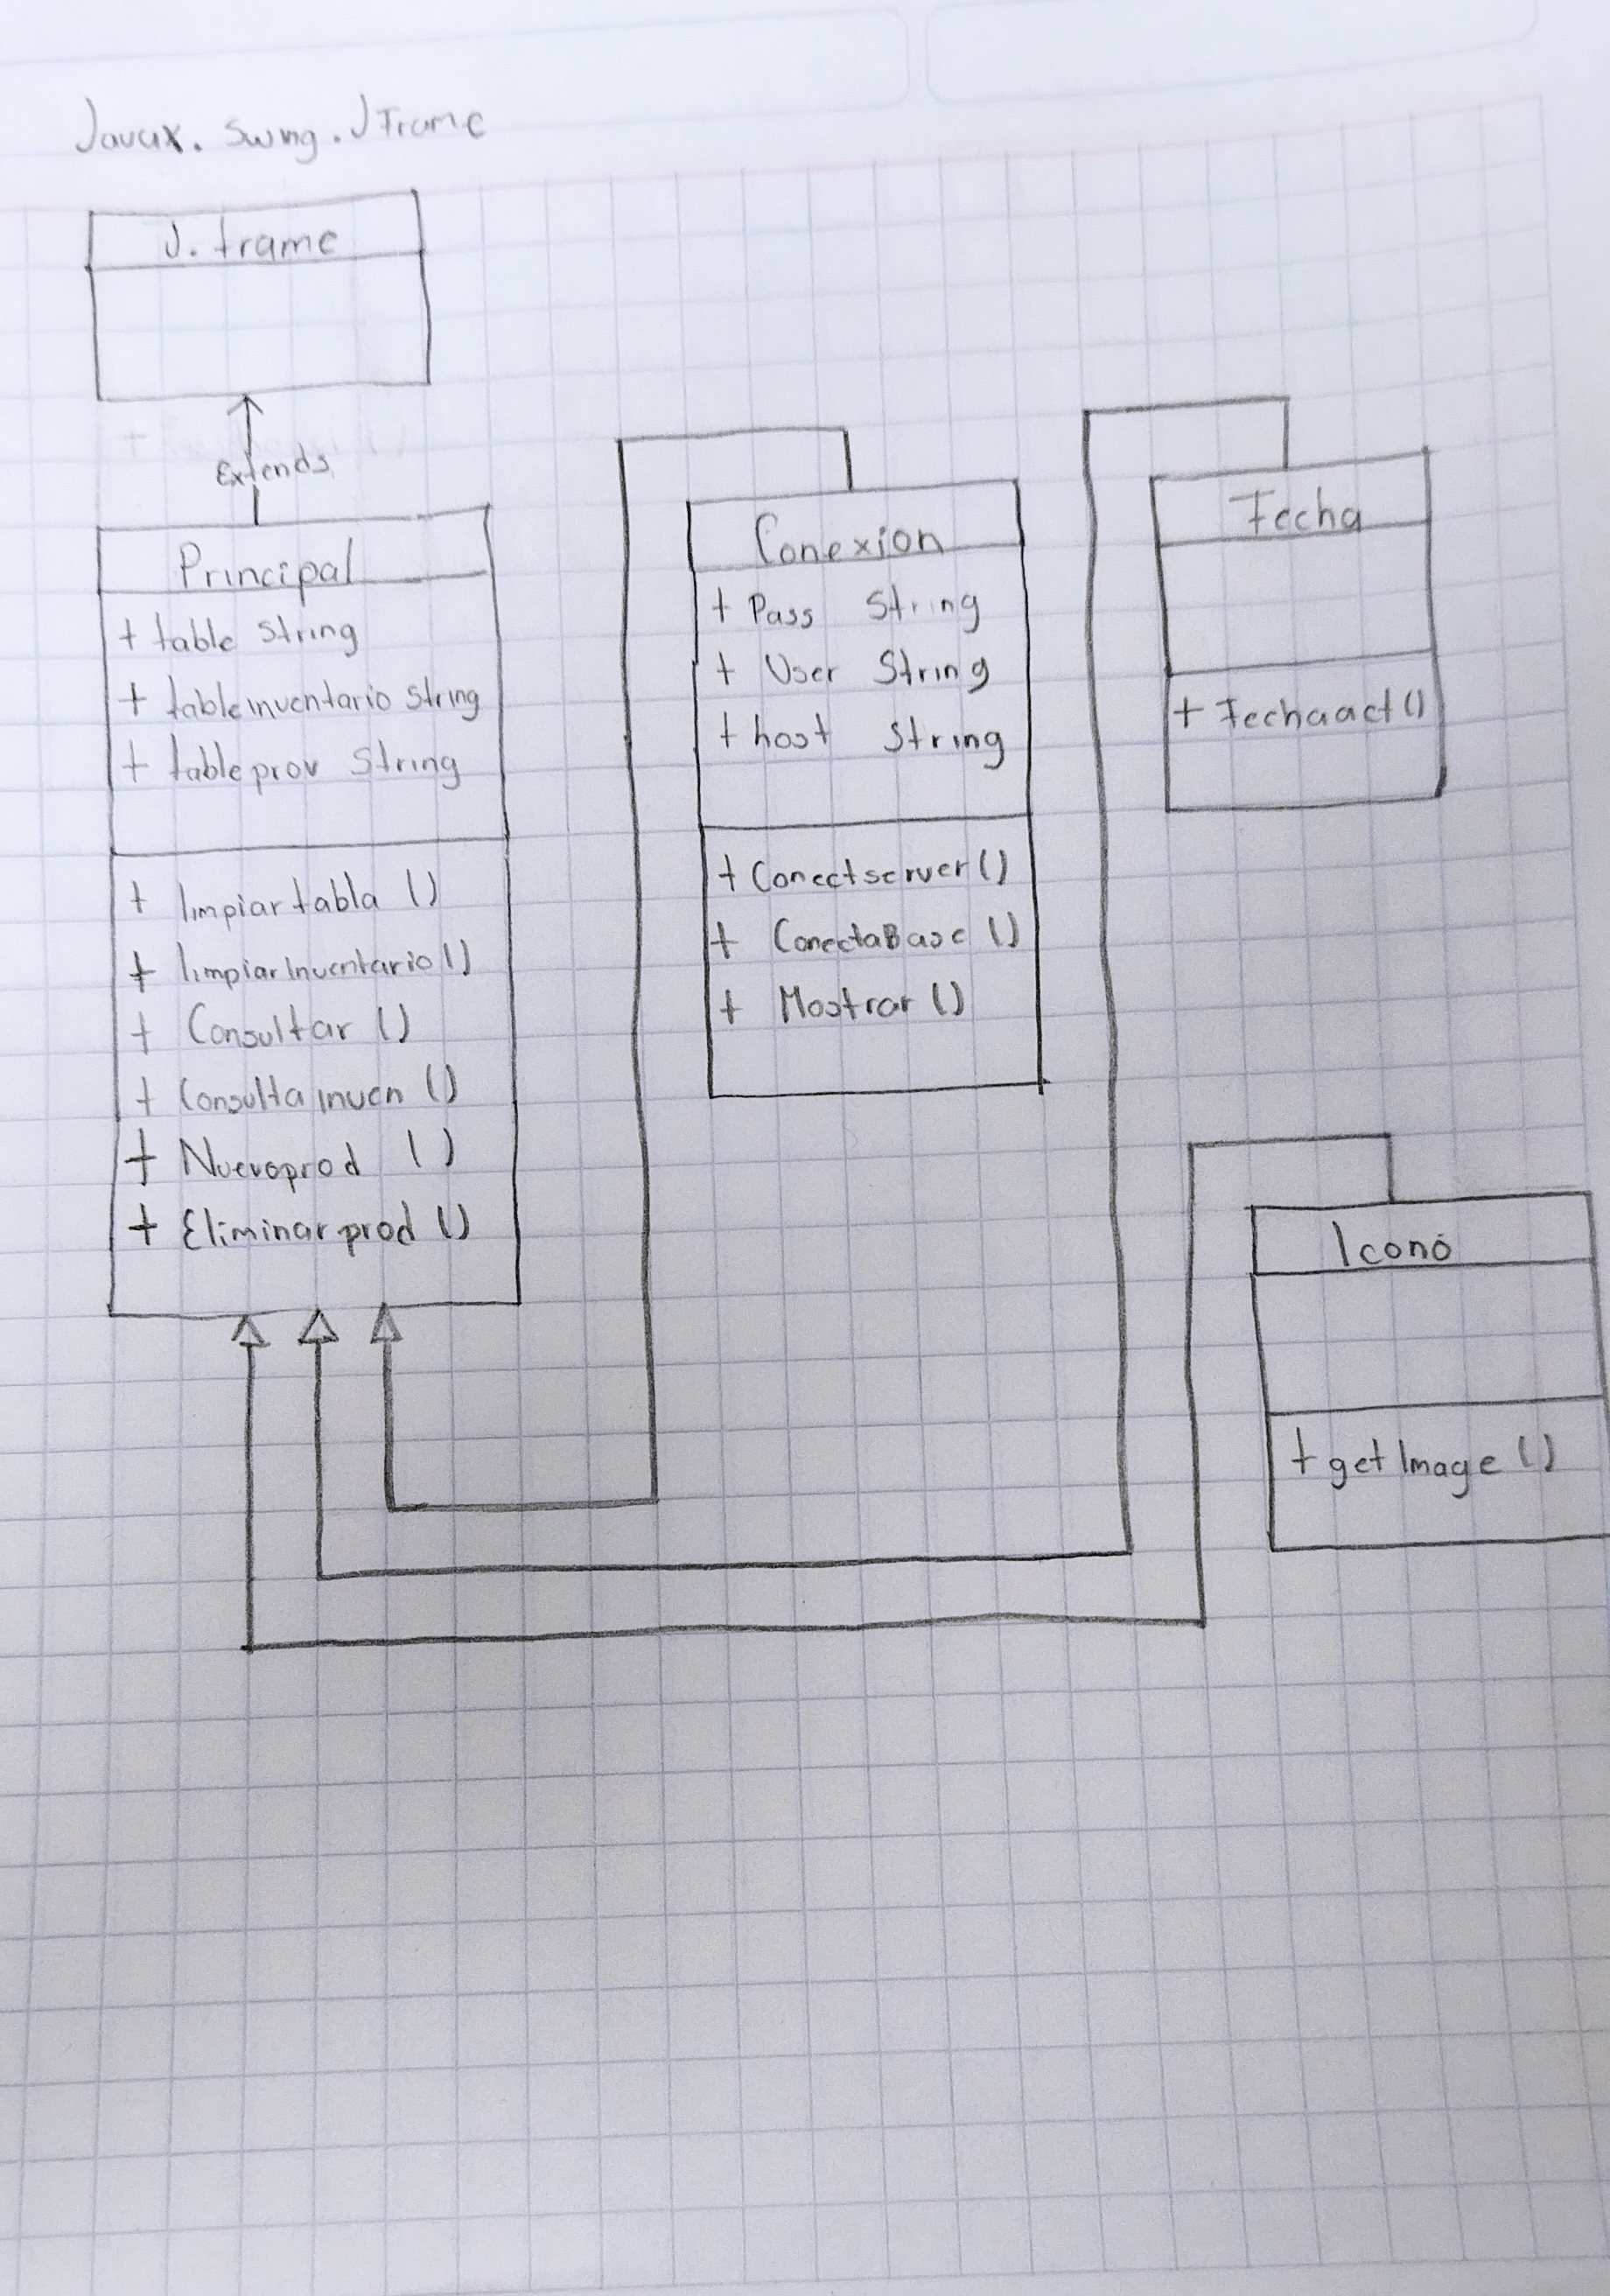 Javax. Swing. JFrame
J. frame
Extends
Principal
+ table String
+ tableinventario String
+ tableprov String
+ limpiartabla ()
+ limpiarInventario ()
+ Consultar ()
+ Consultainven ()
+ Nuevoprod ()
+ Eliminarprod ()
Conexion
+ Pass String
+ User String
+ host String
+ Conectserver ()
+ ConectaBase ()
+ Mostrar ()
Fecha
+ Fechaact ()
Icono
+ getImage ()